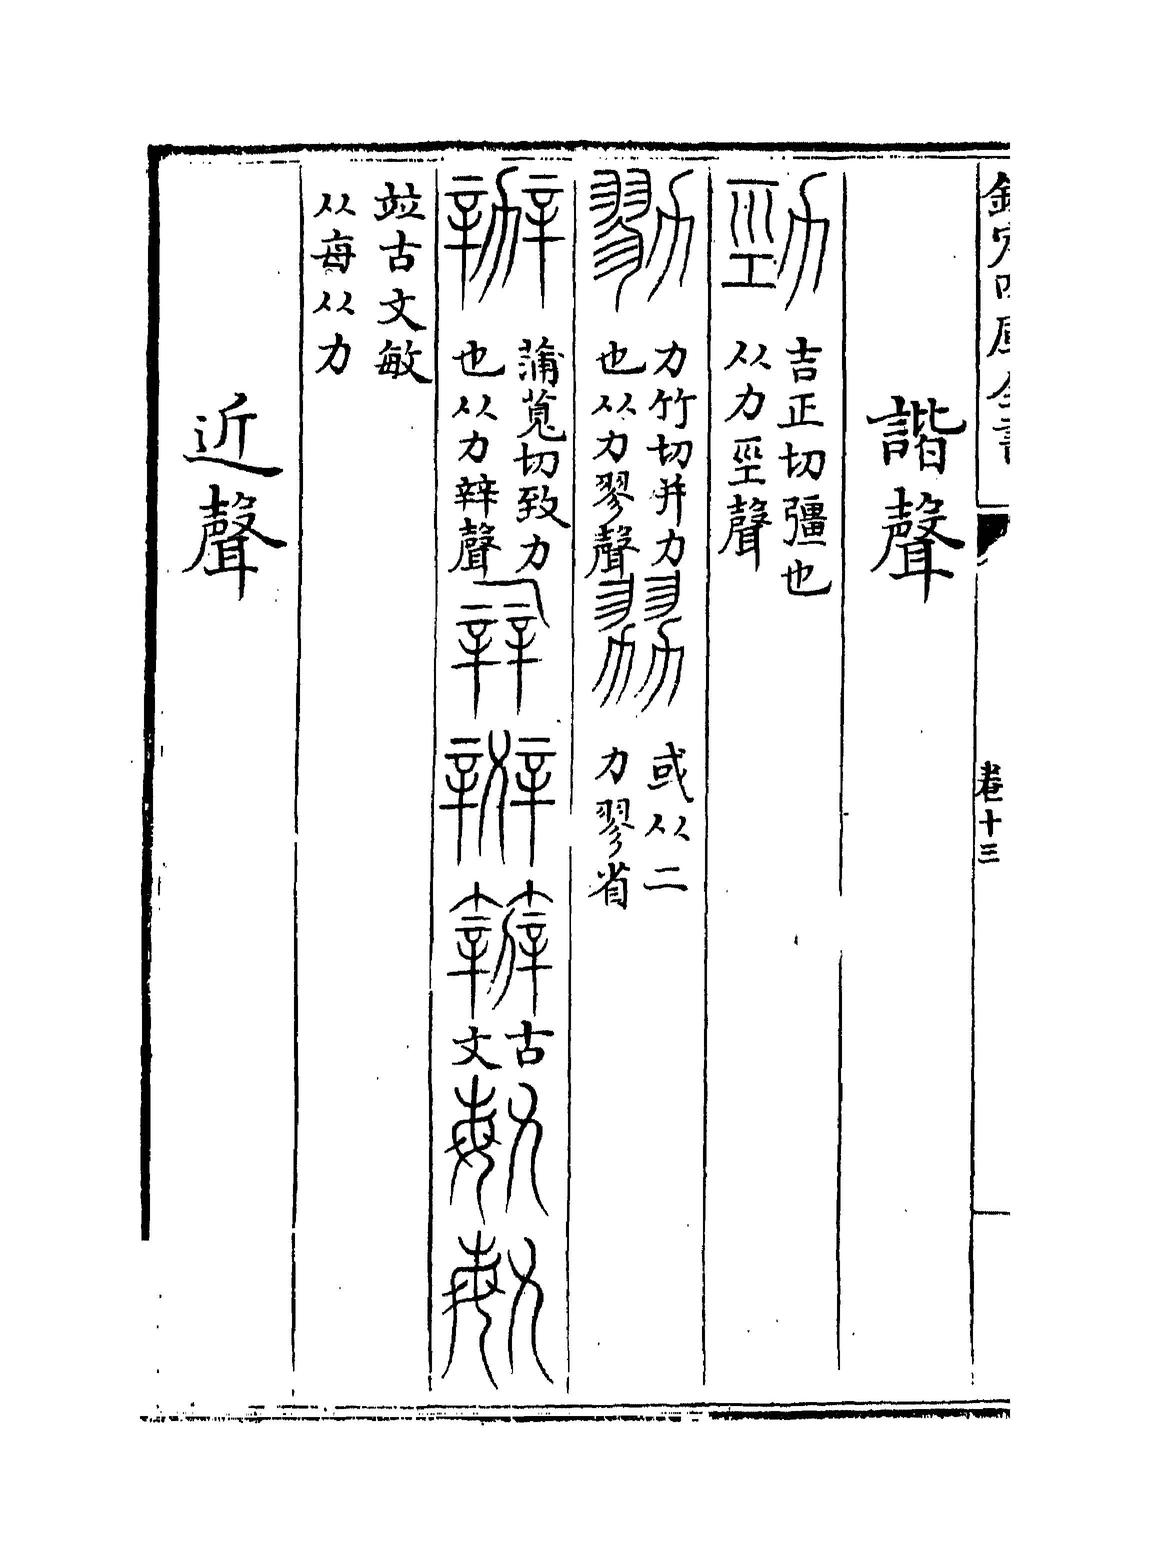 欽定四庫全書
卷十三
諧聲
勁
吉正切彊也
从力巠聲
勠
力竹切并力
也从力翏聲
或从二
力翏省
辦
蒲莧切致力
也从力辡聲
古
文
竝古文敏
从每从力
近聲